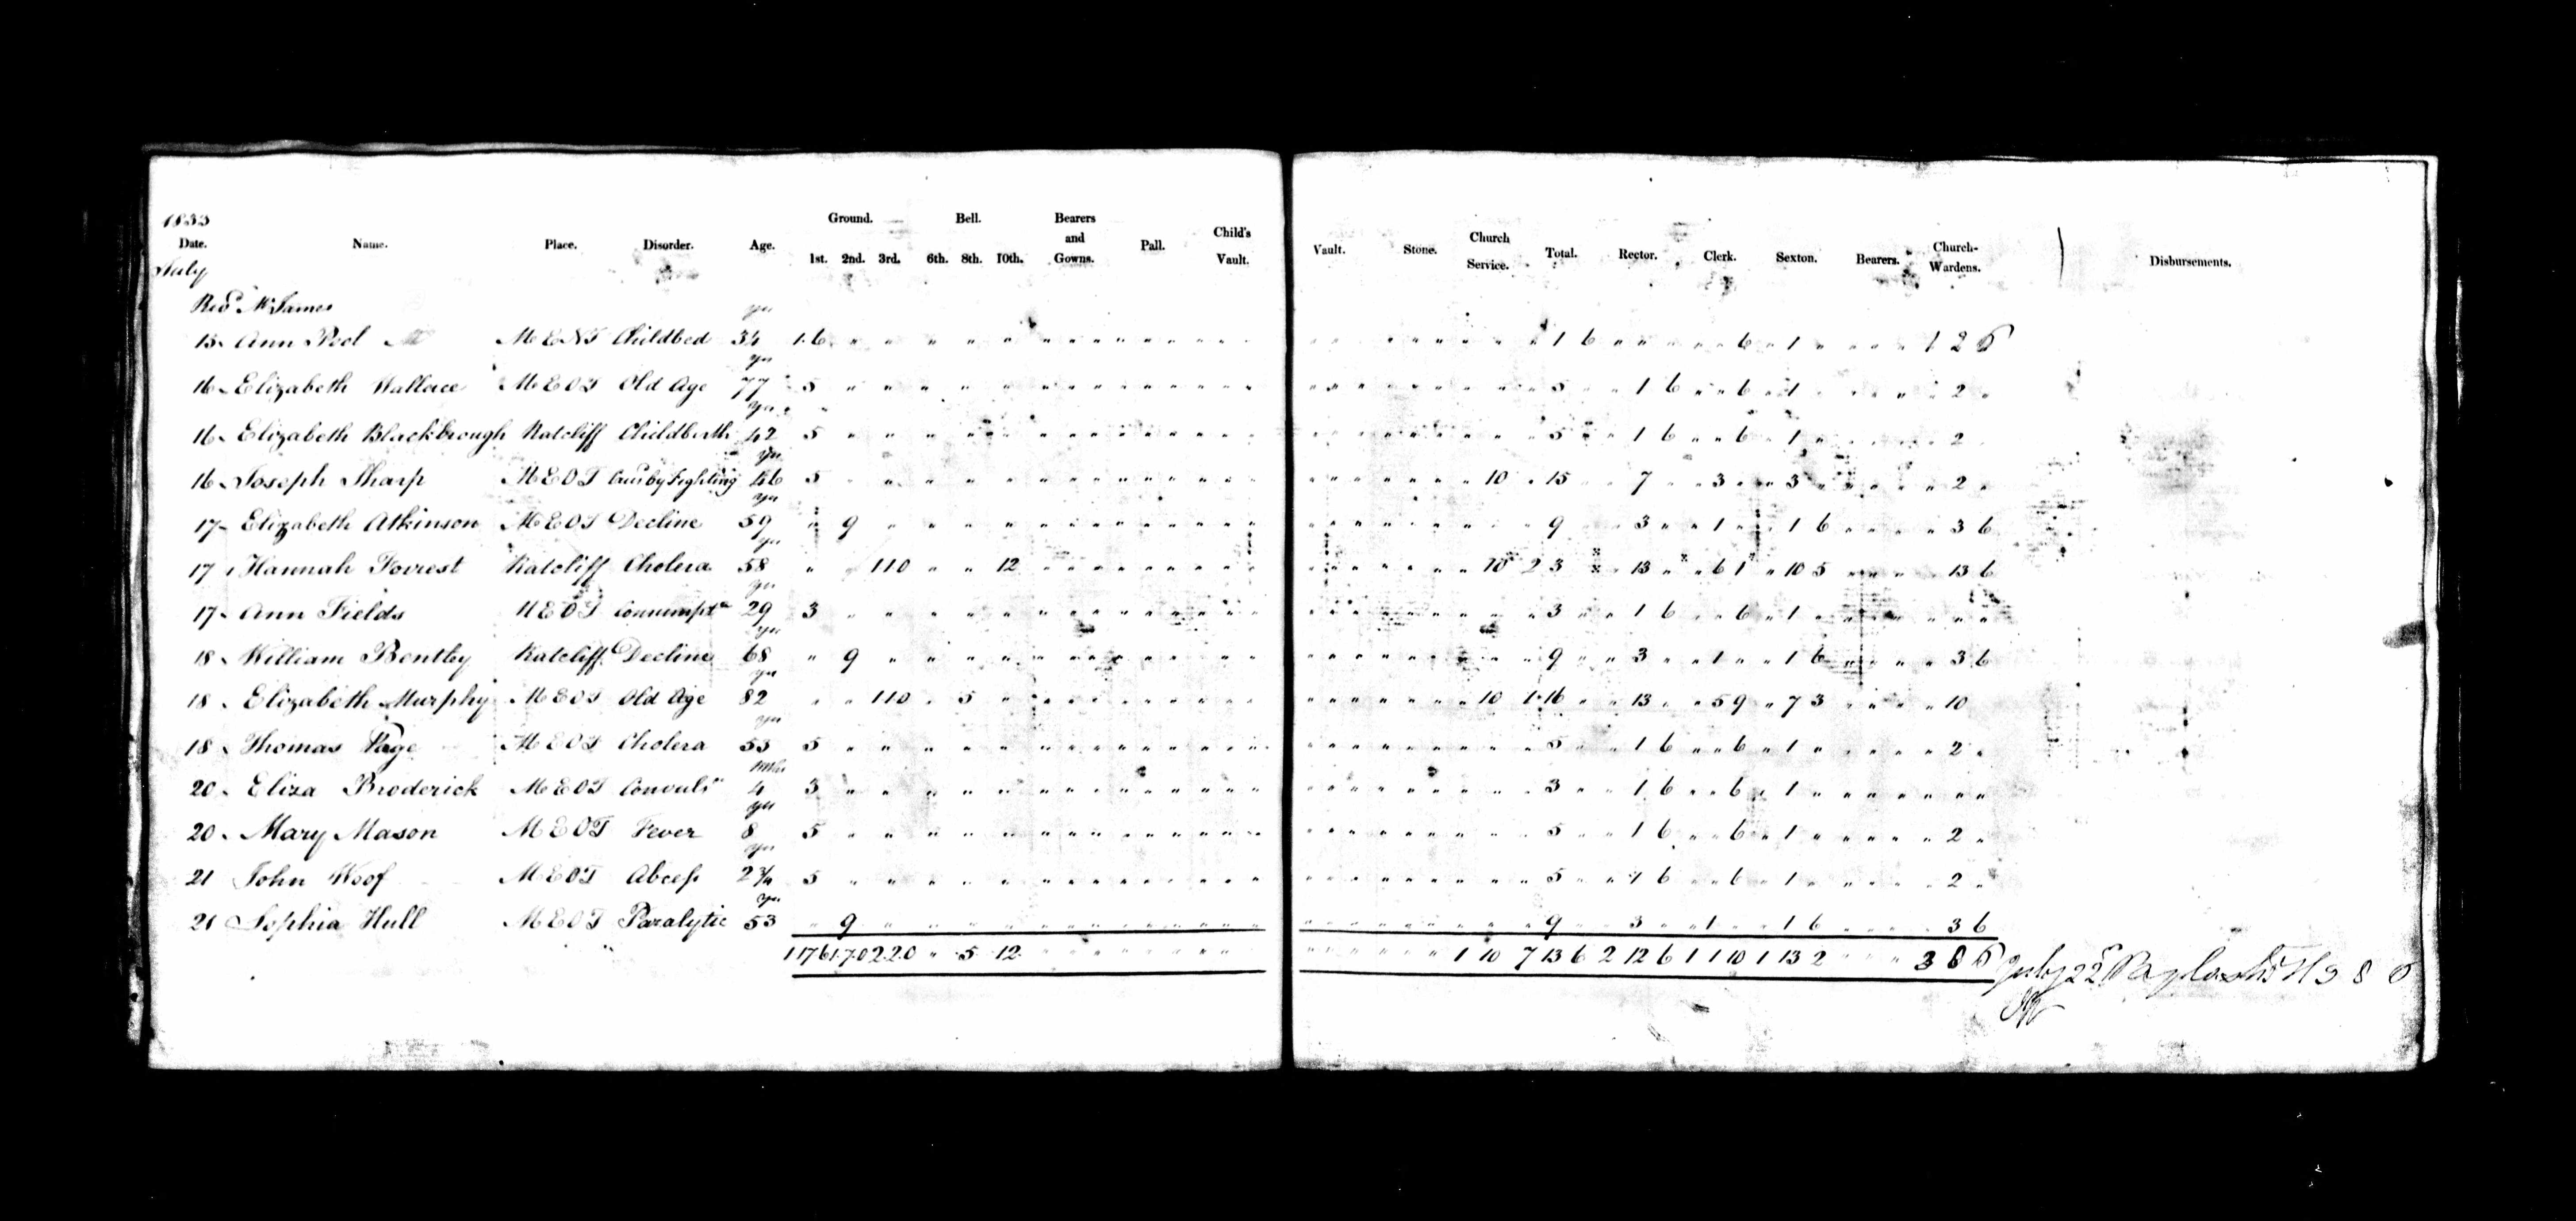 1833
Ground. Bell. Bearers and Gowns. Pall. Child's Vault. Vault. Stone. Church Service. Total. Rector. Clerk. Sexton. Bearers. Church-Wardens. Disbursements.
Date. Name. Place. Disorder. Age. 1st. 2nd. 3rd. 6th. 8th. 10th.
July
Revd Mr James
15 Ann Peel M E N T Childbed 34 yrs 1 6 1 6 6 1 1 2 6
16 Elizabeth Wallace M E O T Old Age 77 yrs 5 5 1 6 6 1 2
16 Elizabeth Blackbrough Ratcliff Childbirth 42 yrs 5 5 1 6 6 1 2
16 Joseph Sharp M E O T by Fighting 46 yrs 5 10 15 7 3 3 2
17 Elizabeth Atkinson M E O T Decline 59 yrs 9 9 3 1 1 6 3 6
17 Hannah Forrest Ratcliff Cholera 58 yrs 1 10 12 10 2 3 13 6 1 10 5 13 6
17 Ann Fields M E O T Consumptn 29 yrs 3 3 1 6 6 1
18 William Bentley Ratcliff Decline 68 yrs 9 9 3 1 1 6 3 6
18 Elizabeth Murphy M E O T Old Age 82 yrs 1 10 5 10 1 16 13 5 9 7 3 10
18 Thomas Page M E O T Cholera 53 yrs 5 5 1 6 6 1 2
20 Eliza Broderick M E O T Convuls 4 Mths 3 3 1 6 6 1
20 Mary Mason M E O T Fever 8 yrs 5 5 1 6 6 1 2
21 John Woof M E O T Abcess 2 3/4 yrs 5 5 1 6 6 1 2
21 Sophia Hull M E O T Paralytic 53 yrs 9 9 3 1 1 6 3 6
1 17 6 1 7 0 2 2 0 5 12 1 10 7 13 6 2 12 6 1 1 10 1 13 2 3 6 6 July 22